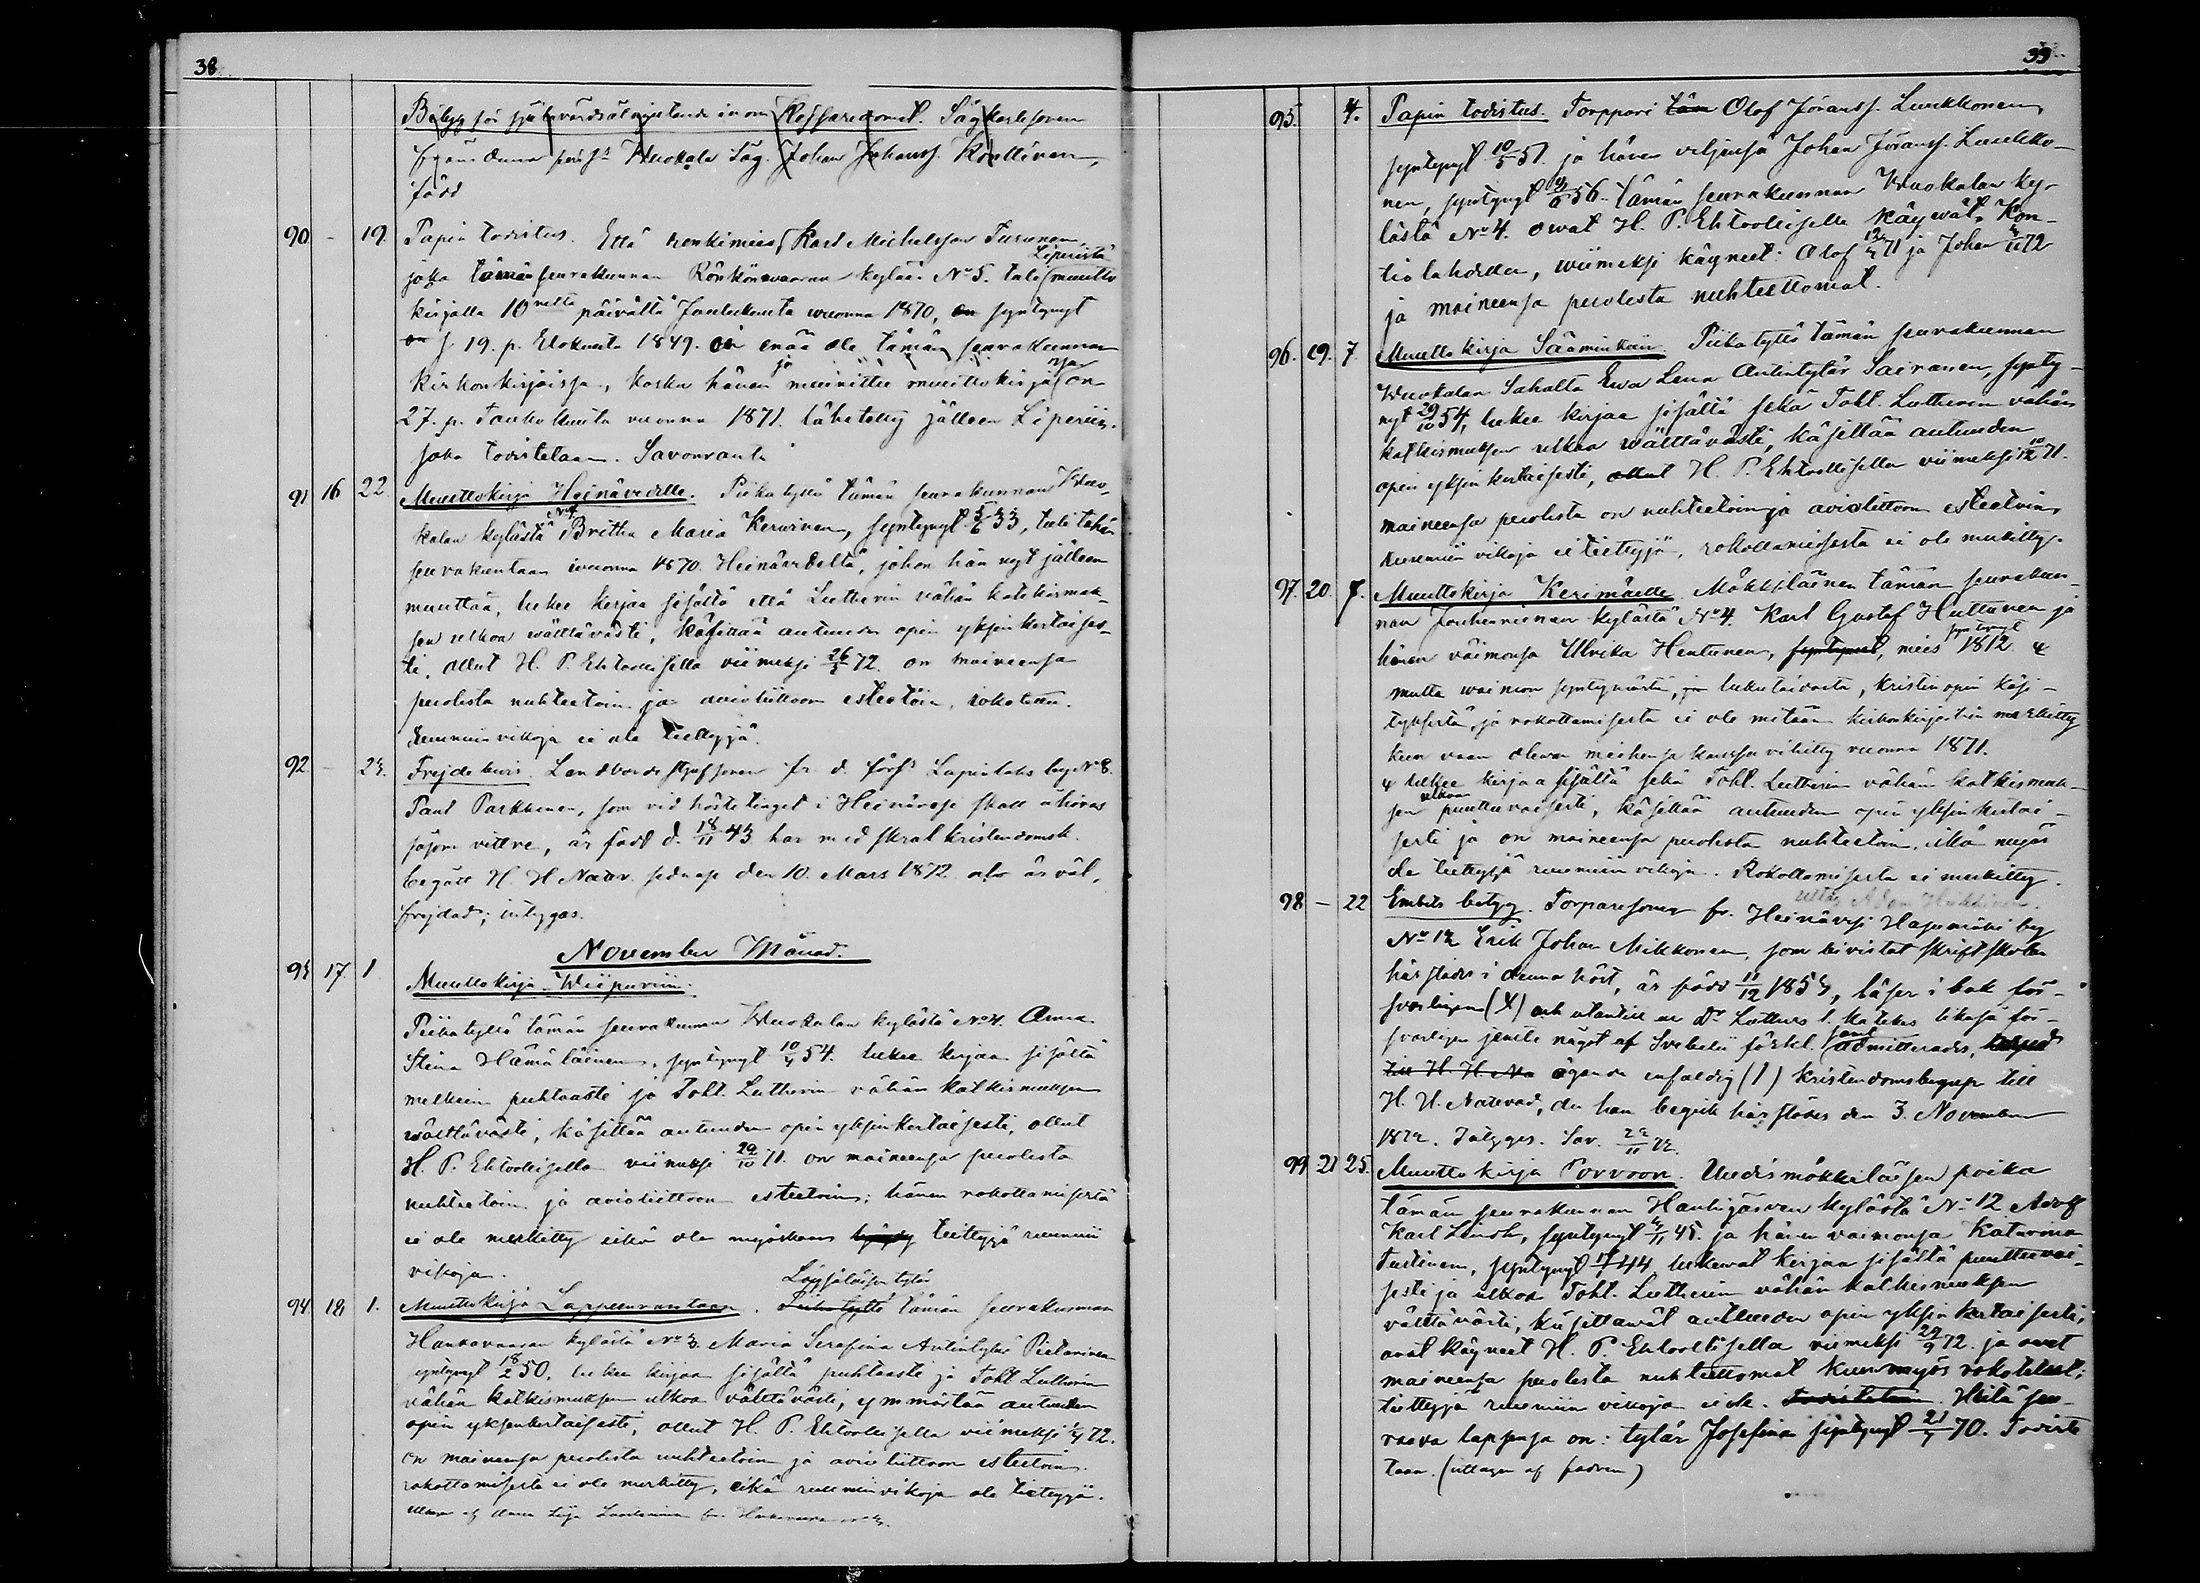 38
Betyg för själavårdsåtnjutande inom Kejsaredömet. Sågkarlssonen
från denna förs:s Wuokala Såg. Johan Johanss. Konttinen,
född
90 – 19. Papin todistus. Että renkimies Karl Michelsson Turunen
Liperistä
joka tämän seurakunnan Rönkönvaaran kylään No 5. tuli muutto
kirjalla 10 neltä päivältä Joulukuuta wuonna 1870, on syntynyt
on j 19. p. Elokuuta 1849. ei enää ole tämän seurakunnan
kirkonkirjoissa, koska hänen ja mainittu muuttokirjansa on
27. p. Toukokuuta vuonna 1871. lähetetty jälleen Liperiin.
joka todistetaan. Savonranta
91 16 22. Muuttokirja Heinävedelle. Piikatyttö tämän seurakunnan Wuo-
kalan kylästä No 4 Britha Maria Kervinen, syntynyt 5/6 33, tuli tähän
seurakuntaan wuonna 1870. Heinävedeltä, johon hän nyt jälleen
muuttaa, lukee kirjaa sisältä että Lutherin vähän katekismuk-
sen ulkoa wälttävästi, käsittää autuuden opin yksinkertaises-
ti, ollut H. P. Ehtoollisella viimeksi 26/5 72. on maineensa
puolesta nuhteetoin ja avioliittoon esteetöin, rokotettu.
Ruumiin vikoja ei ole tiettyjä.
92 – 23. Frejdebevis. Landbondesysslosonen fr. d. förs:s Lapinlaks by No 8.
Paul Parkkinen, som vid höstetinget i Heinävesi skall åhöras
såsom vittne, är född d. 18/11 43 har med skral kristendomsk.
begått H. H. Nattv. sednast den 10. Mars 1872 och är väl-
frejdad; intygas.
November Månad.
93 17 1. Muuttokirja Wiipuriin.
Piikatyttö tämän seurakunnan Wuokalan kylästä No 4. Anna
Stina Hämäläinen, syntynyt 10/4 54. lukee kirjaa sisältä
melkein puhtaasti ja Toht. Lutherin vähän katkismuksen
wälttävästi, käsittää autuuden opin yksinkertaisesti, ollut
H. P. Ehtoollisella viimeksi 29/10 71. on maineensa puolesta
nuhteetoin ja avioliittoon esteetoin; hänen rokottamisesta
ei ole merkitty eikä ole myöskään tiettyjä ruumiin
vikoja.
Loisen tytär
94 18 1. Muuttokirja Lappeenrantaan. Piikatyttö tämän seurakunnan
Hankavaaran kylästä No 3. Maria Serafina Antintytär Pietarinen
syntynyt 18/2 50, lukee kirjaa sisältä puhtaasti ja Toht Lutherin
vähän katkismuksen ulkoa välttävästi, ymmärtää autuuden
opin yksinkertaisesti, ollut H. P. Ehtoollisella viimeksi 72.
on maineensa puolesta nuhteetoin ja avioliittoon esteetoin.
rokottamisesta ei ole merkitty, eikä ruumiin vikoja ole tiettyjä.
39
95. 4. Papin todistus. Torppari täm Olof Jöranss. Luukkonen,
syntynyt 10/5 51. ja hänen veljensä Johan Jöranss. Luukko-
nen, syntynyt 56. tämän seurakunnan Wuokalan ky-
lästä No 4. owat H. P. Ehtoollisella käywät, Kon-
tiolahdella, wiimeksi käyneet: Olof 71 ja Johan 72
ja maineensa puolesta nuhteettomat.
96. 19. 7 Muuttokirja Sääminkiin. Piikatyttö tämän seurakunnan
Wuokalan Sahalta Ewa Lena Antintytär Sairanen, synty-
nyt 29/10 54, lukee kirjaa sisältä sekä Toht. Lutherin vähän
katkismuksen ulkoa wälttävästi, käsittää autuuden
opin yksinkertaisesti, ollut H. P. Ehtoollisella viimeksi 10/12 71.
maineensa puolesta on nuhteetoin ja avioliittoon esteetoin,
ruumiin vikoja ei tiettyjä, rokottamisesta ei ole merkitty.
97. 20. 7. Muuttokirja Kerimäelle. Mökkiläinen tämän seurakun-
nan Jouhenniemen kylästä No 4. Karl Gustaf Huttunen ja
hänen vaimonsa Ulrika Hentunen, syntyneet, mies syntynyt 1812
mutta waimon syntymästä, ja lukutaidosta, kristinopin käsi-
tyksestä, ja rokottamisesta ei ole mitään kirkonkirjoihin merkitty
kuin vaan olevan miehensä kanssa vihitty vuonna 1871.
lukee kirjaa sisältä sekä Toht. Lutherin vähän katkismuk-
sen ulkoa puuttuvaisesti, käsittää autuuden opin yksinkertai-
sesti ja on maineensa puolesta nuhteetoin, eikä myös
ole tiettyjä ruumiin vikoja. Rokottamisesta ei merkitty.
98 – 22 Embets betyg. Torparesonen fr. Heinävesi Hasumäki by
No 12 Erik Johan Mikkonen, som bivistat skriftskolan
härstädes i denna höst, är född 11/12 1853, läser i bok för-
svarligen (X) och utantill ur Dr Luthers l. katekes likaså för-
svarligen jemte något af Svebelii förkl. samt admitterades,
till H. H. Na ägande enfaldig (1) kristendomsbegrep till
H. H. Nattvard, den han begick härstädes den 3. November
1872. Intygas. Sav. 22/11 72.
99 21 25. Muuttokirja Porvoon. Uudismökkiläisen poika
tämän seurakunnan Haukijärven kylästä No 12 Adolf
Karl Lindh, syntynyt 45. ja hänen vaimonsa Katarina
Tuttinen, syntynyt 44 lukewat kirjaa sisältä puuttuvai-
sesti ja ulkoa Toht. Lutherin vähän katkismuksen
välttävästi, käsittäwät autuuden opin yksinkertaisesti;
ovat käyneet H. P. Ehtoollisella viimeksi 29/9 72. ja ovat
maineensa puolesta nuhteettomat kuin myös rokotetut;
tiettyjä ruumiin vikoja ei ole. Todistetaan. Heitä seu-
raava lapsensa on: tytär Josefina syntynyt 21/4 70. Todiste
taan. (uttagen af fadren)